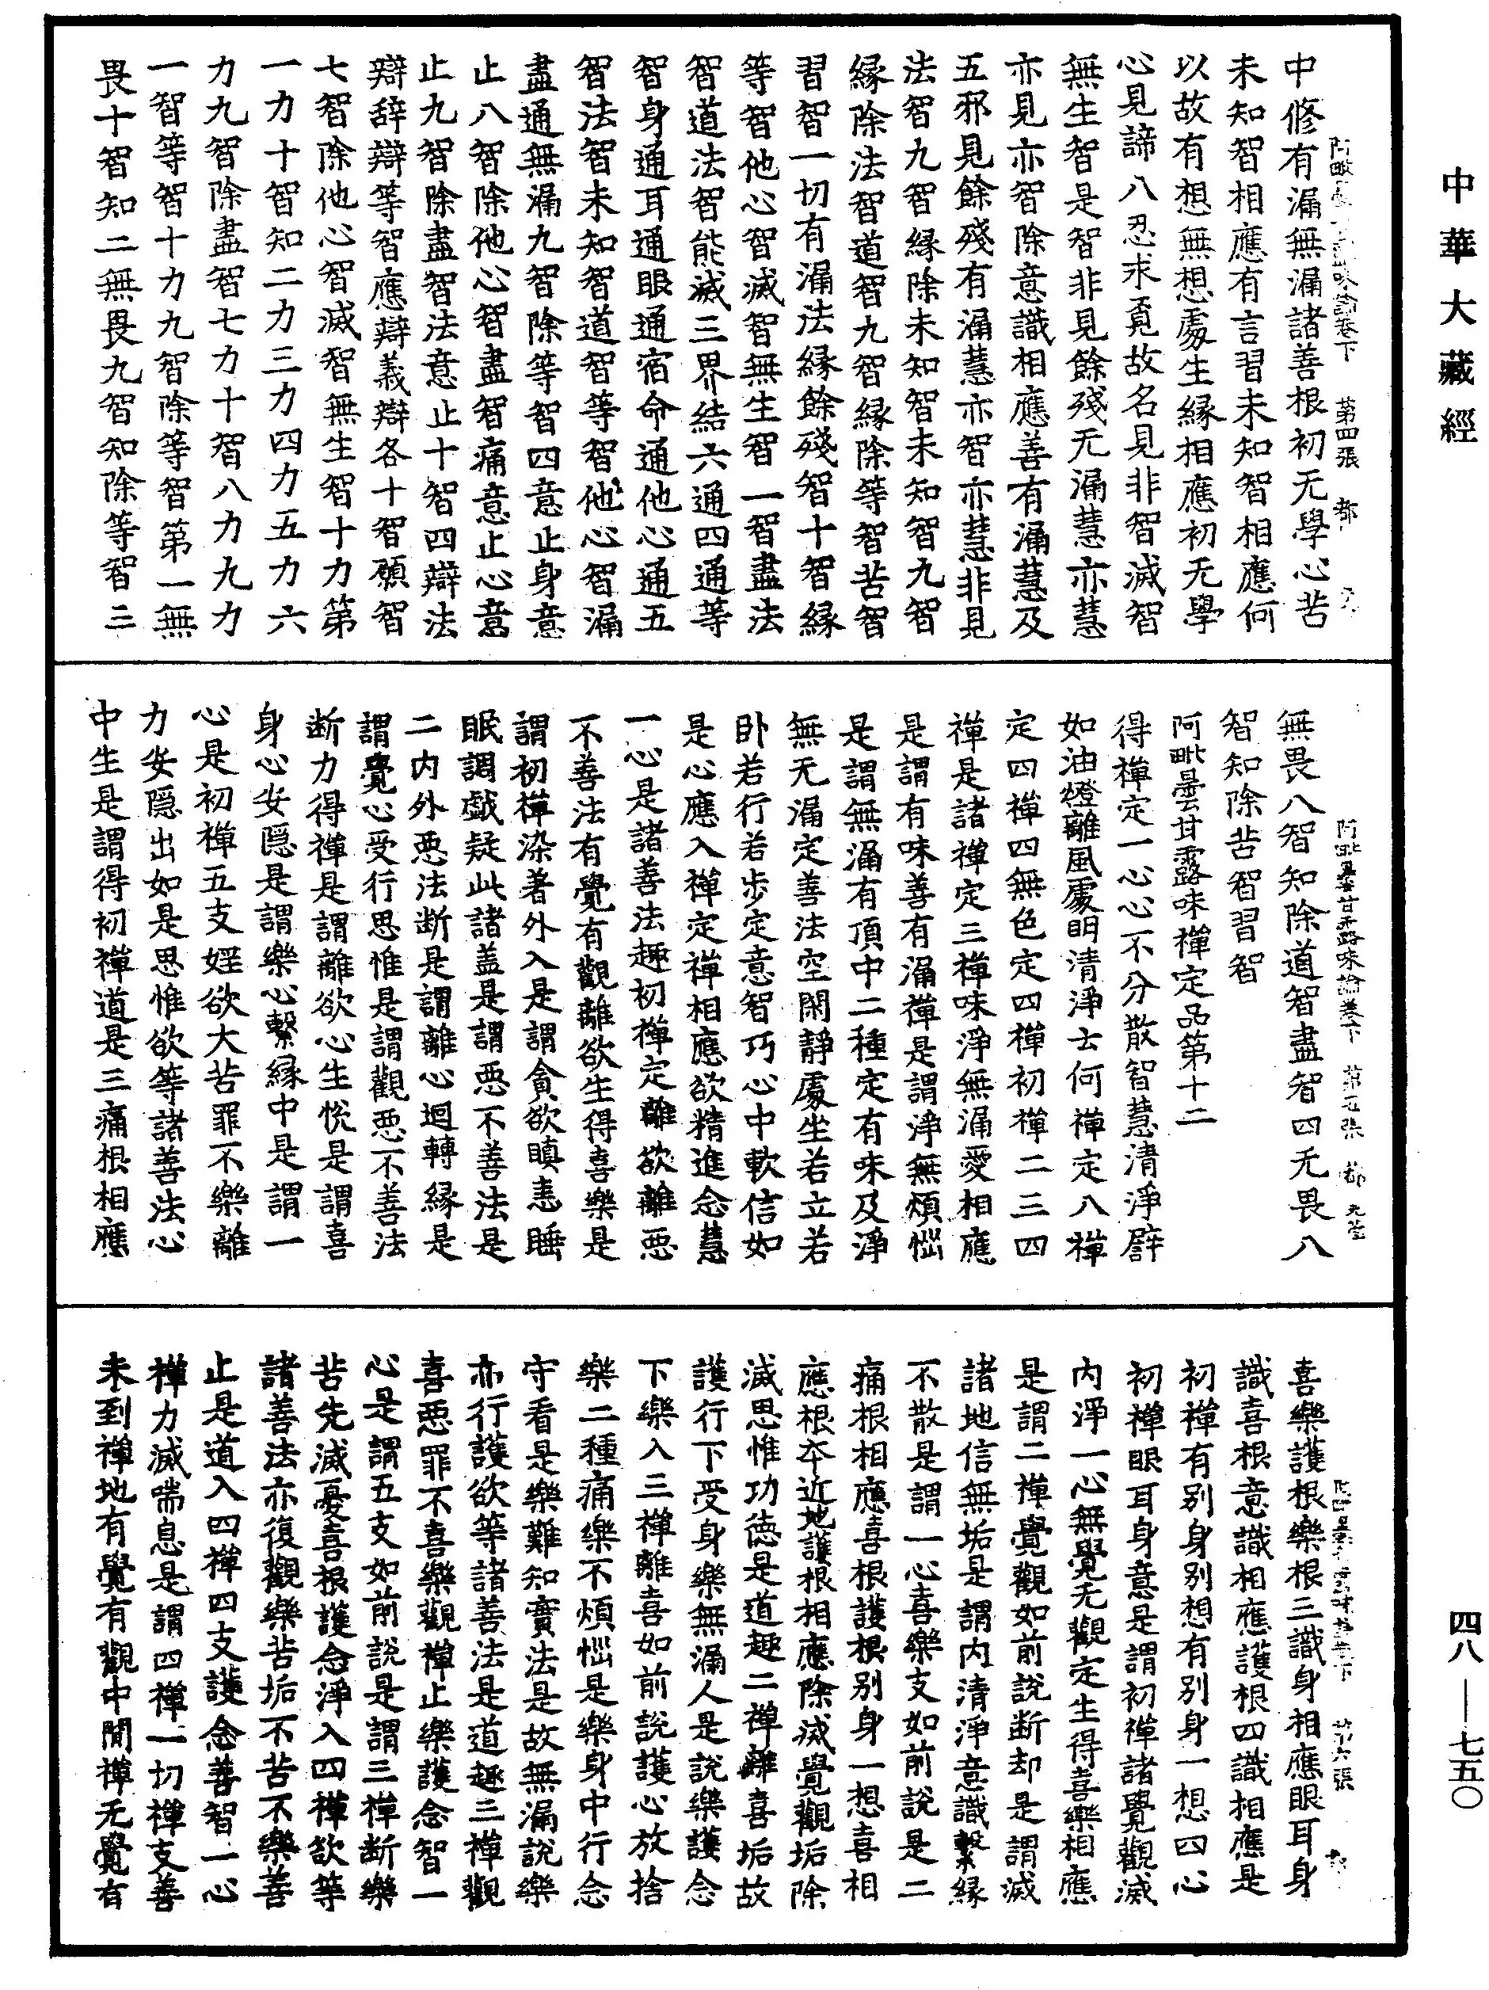 中華大藏經
中修有漏無漏諸善根初无學心苦
未知智相應有言習未知智相應何
以故有想無想處生緣相應初无學
心見諦八忍求覓故名見非智滅智
無生智是智非見餘殘无漏慧亦慧
亦見亦智除意識相應善有漏慧及
五邪見餘殘有漏慧亦智亦慧非見
法智九智緣除未知智未知智九智
緣除法智道智九智緣除等智苦智
習智一切有漏法緣餘殘智十智緣
等智他心智滅智無生智一智盡法
智道法智能滅三界結六通四通等
智身通耳通眼通宿命通他心通五
智法智未知智道智等智他心智漏
盡通無漏九智除等智四意止身意
止八智除他心智盡智痛意止心意
止九智除盡智法意止十智四辯法
辯辭辯等智應辯義辯各十智願智
七智除他心智滅智無生智十力第
一力十智知二力三力四力五力六
力九智除盡智七力十智八力九力
一智等智十力九智除等智第一無
畏十智知二無畏九智知除等智三
阿毗曇甘露味論卷下 第五張 都
無畏八智知除道智盡智四无畏八
智知除苦智習智
阿毗曇甘露味禪定品第十二
得禪定一心心不分散智慧清淨譬
如油燈離風處明清淨士何禪定八禪
定四禪四無色定四禪初禪二三四
禪是諸禪定三禪味淨無漏愛相應
是謂有味善有漏禪是謂淨無煩惱
是謂無漏有頂中二種定有味及淨
無无漏定善法空閑靜處坐若立若
卧若行若步定意智巧心中軟信如
是心應入禪定禪相應欲精進念慧
一心是諸善法趣初禪定離欲離惡
不善法有覺有觀離欲生得喜樂是
謂初禪染著外入是謂貪欲瞋恚睡
眠調戲疑此諸盖是謂惡不善法是
二內外惡法斷是謂離心迴轉緣是
謂覺心受行思惟是謂觀惡不善法
斷力得禪是謂離欲心生悅是謂喜
身心安隱是謂樂心繫緣中是謂一
心是初禪五支婬欲大苦罪不樂離
力安隱出如是思惟欲等諸善法心
中生是謂得初禪道是三痛根相應
喜樂護根樂根三識身相應眼耳身
識喜根意識相應護根四識相應是
初禪有別身別想有別身一想四心
初禪眼耳身意是謂初禪諸覺觀滅
內淨一心無覺无觀定生得喜樂相應
是謂二禪覺觀如前說斷却是謂滅
諸地信無垢是謂內清淨意識繫緣
不散是謂一心喜樂支如前說是二
痛根相應喜根護根別身一想喜相
應根本近地護根相應除滅覺觀垢除
滅思惟功德是道趣二禪離喜垢故
護行下受身樂無漏人是說樂護念
下樂入三禪離喜如前說護心放捨
樂二種痛樂不煩惱是樂身中行念
守看是樂難知實法是故無漏說樂
亦行護欲等諸善法是道趣三禪觀
喜惡罪不喜樂觀禪止樂護念智一
心是謂五支如前說是謂三禪斷樂
苦先滅憂喜根護念淨入四禪欲等
諸善法亦復觀樂苦垢不苦不樂善
止是道入四禪四支護念善智一心
禪力滅喘息是謂四禪一切禪支善
未到禪地有覺有觀中閒禪无覺有
四八——七五〇